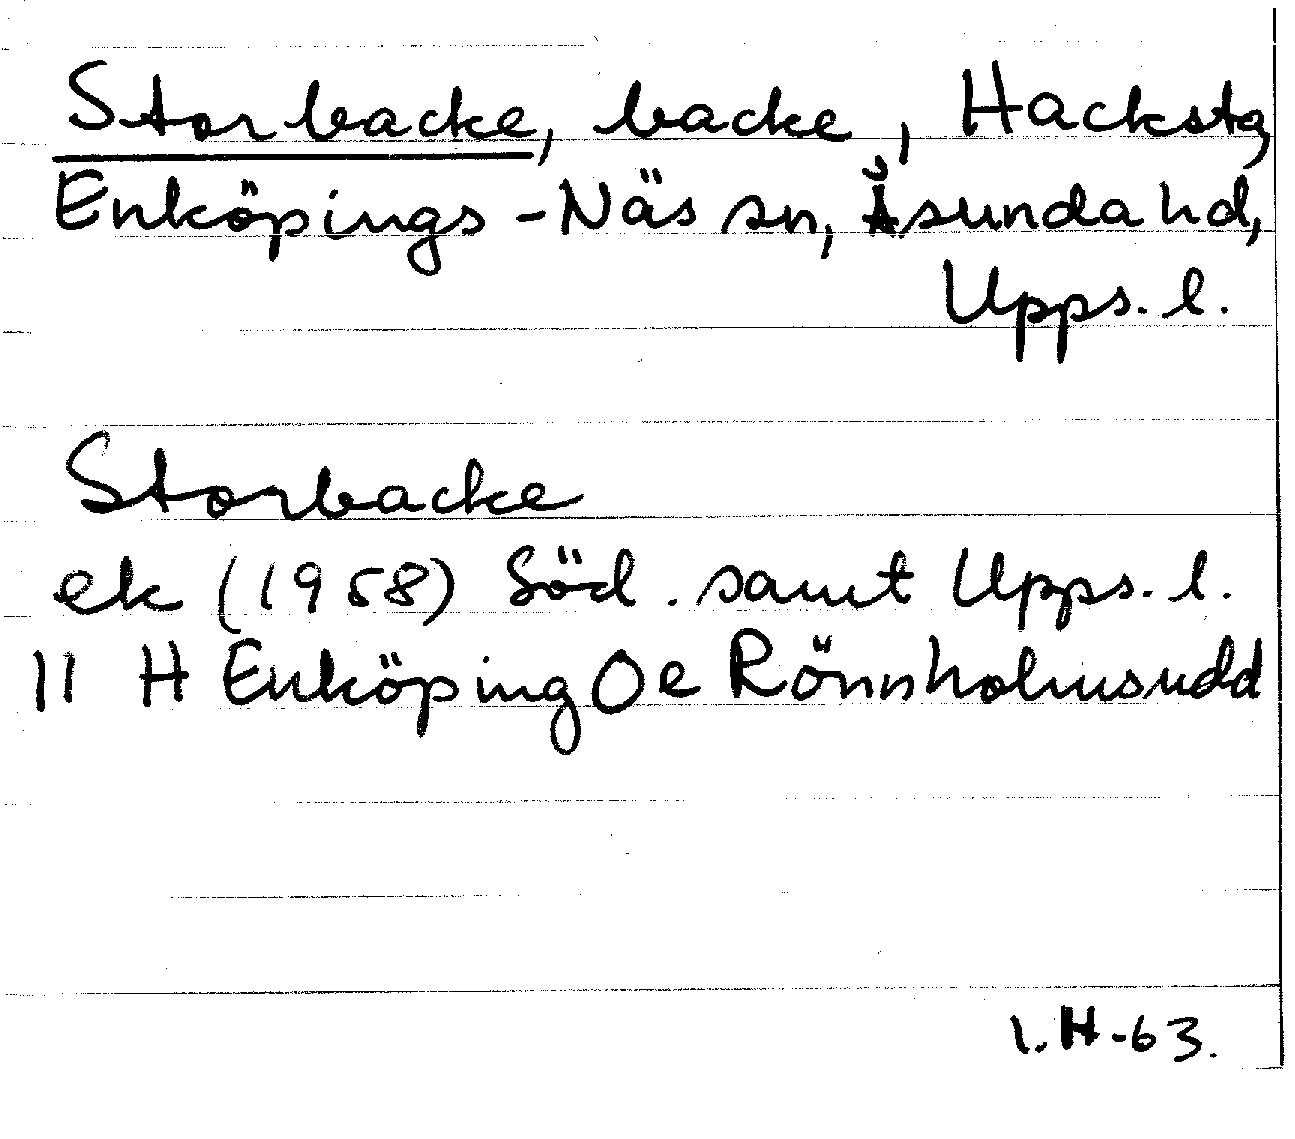 Storbacke, backe, Hacksta,
Enköpings-Näs sn, Åsunda hd,
Upps. l.
Storbacke
ek (1958) Söd. samt Upps. l.
11 H Enköping Oe Rönnholmsudd
I. H-63.